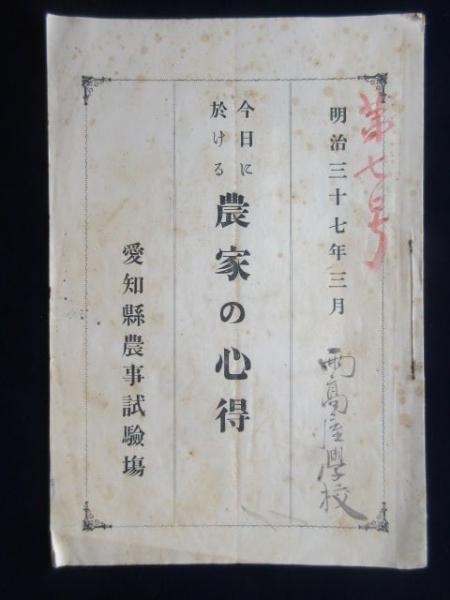 第七号
明治三十七年三月
今日に
於ける
農家の心得
愛知縣農事試驗場